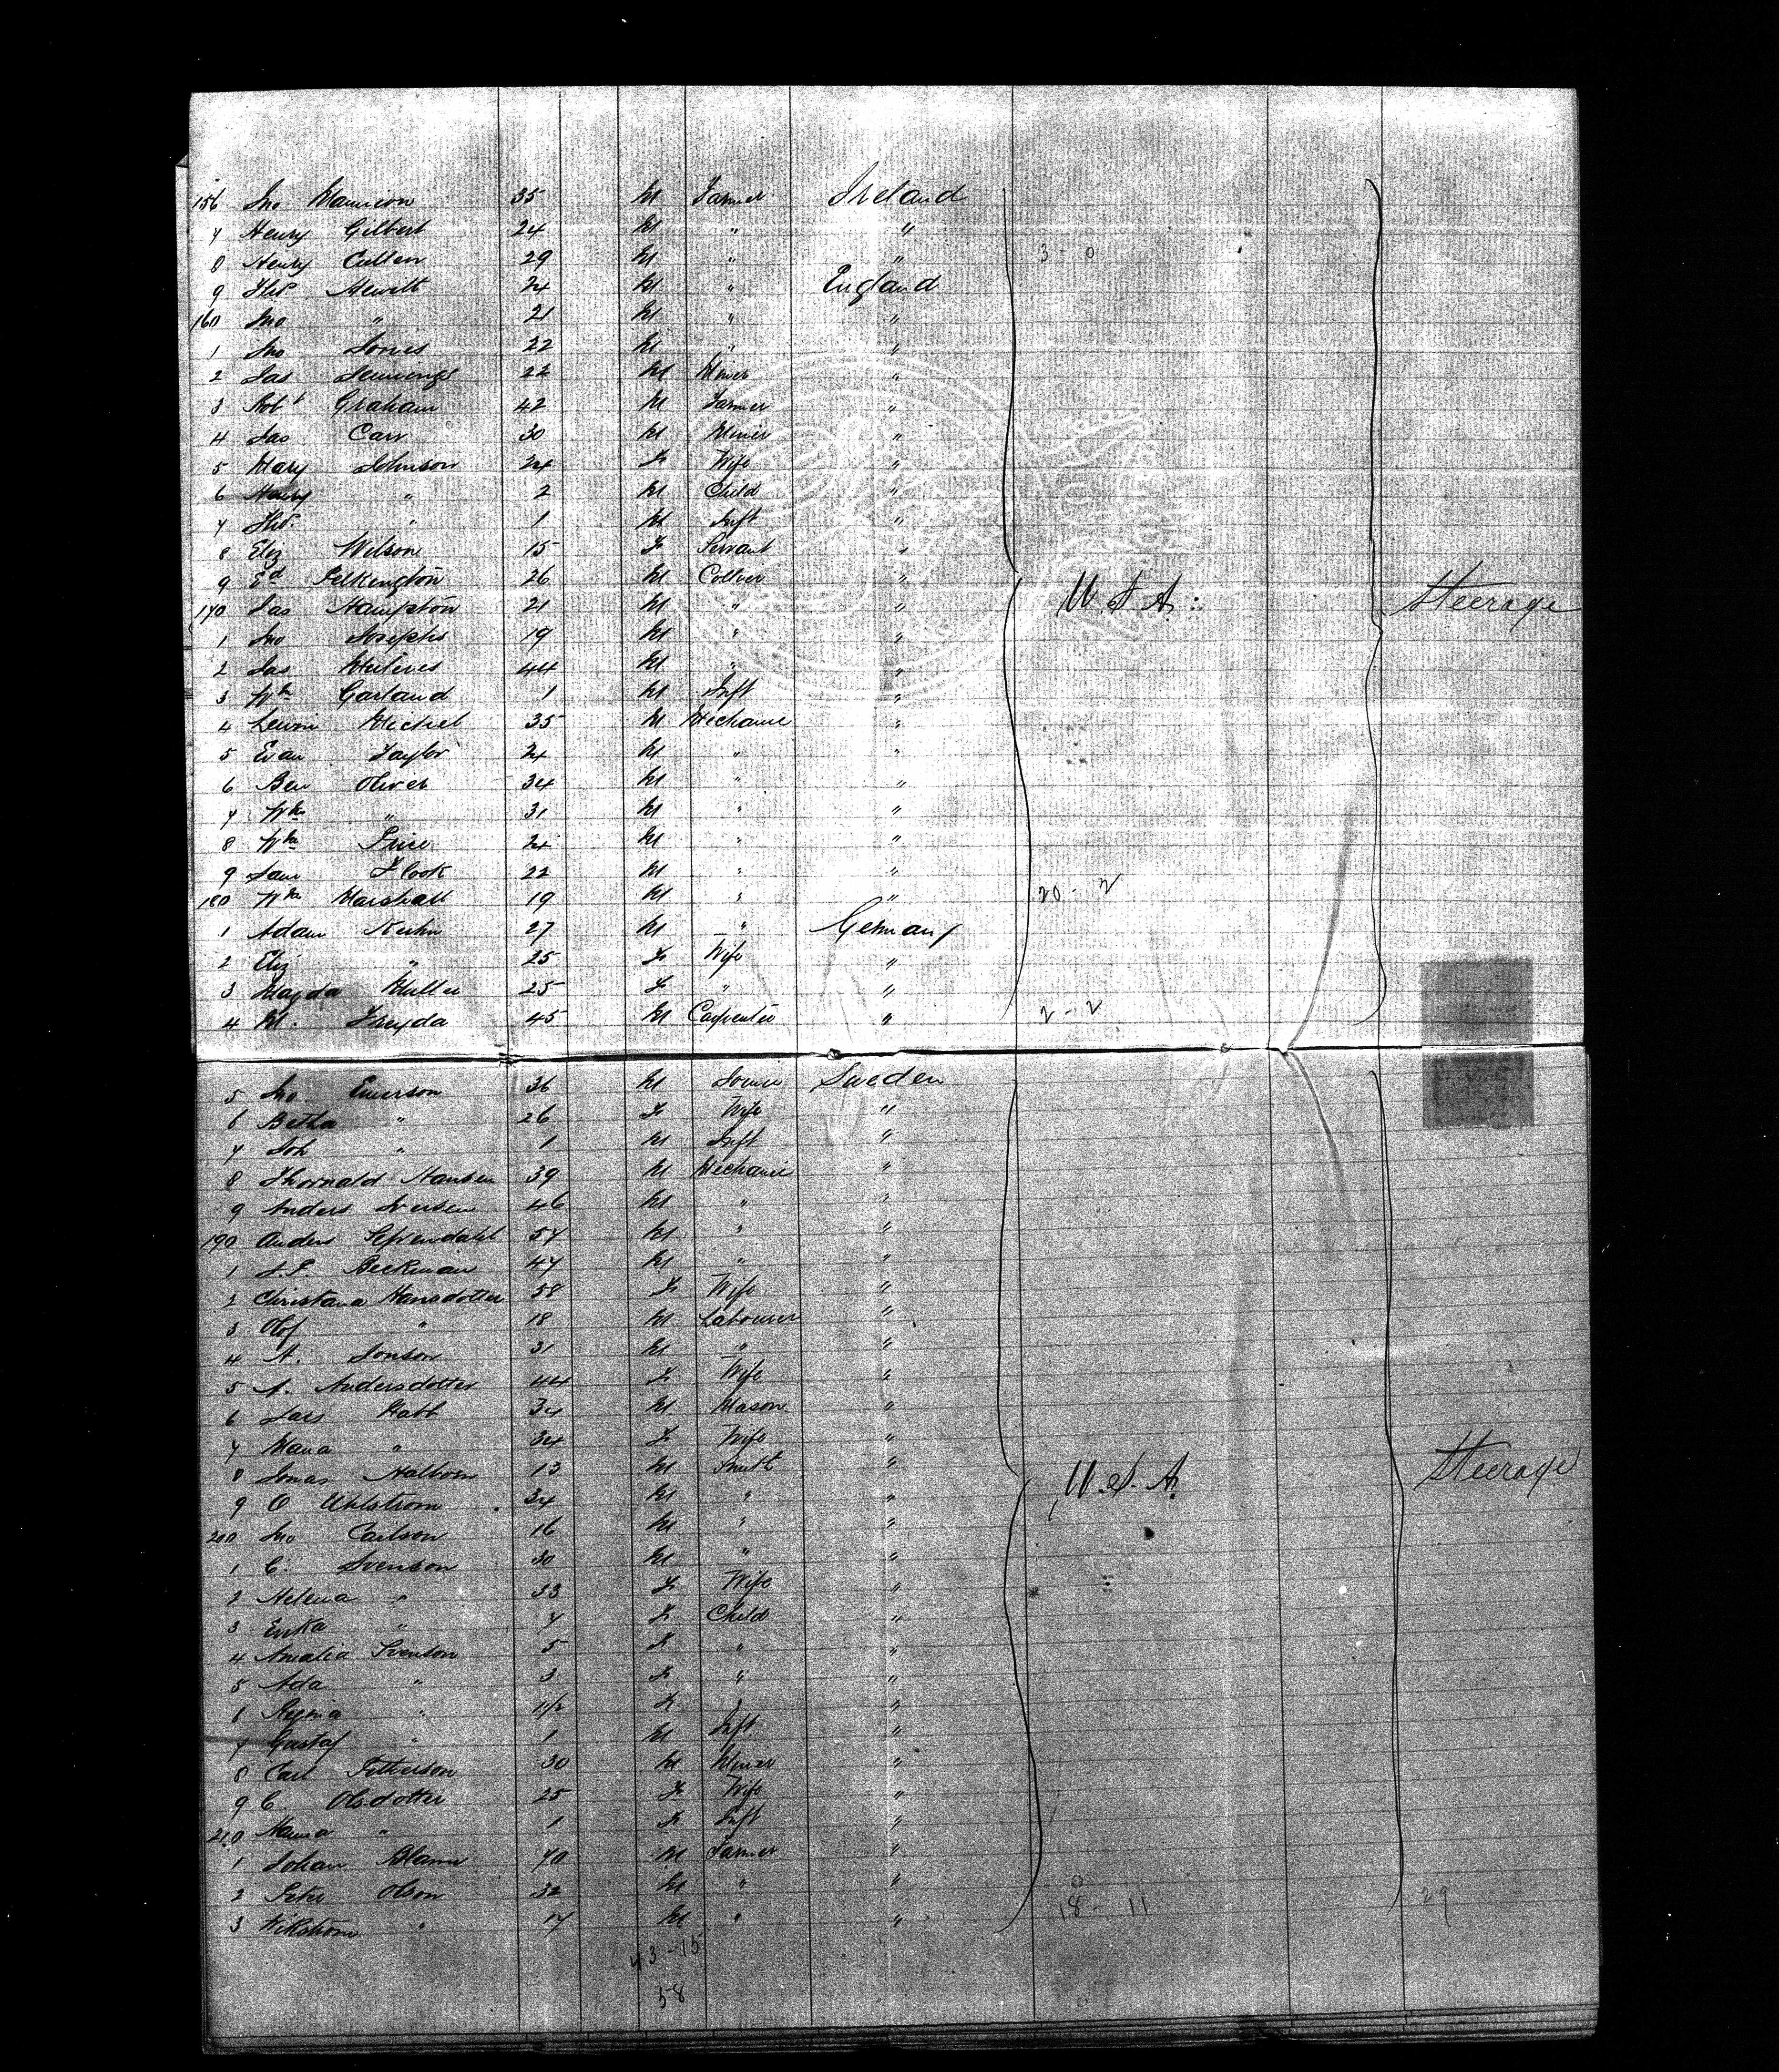 156 Jno Mannion 35 M Farmer Ireland
7 Henry Gilbert 24 M " "
8 Henry Cullen 29 M " " 3 - 0
9 Thos Hewitt 24 M " England
160 Jno " 21 M " "
1 Jno Jones 22 M " "
2 Jas Jennings 22 M Miner "
3 Robt Graham 42 M Farmer "
4 Jas Carr 30 M Miner "
5 Mary Johnson 24 F Wife "
6 Henry " 2 M Child "
7 Thos " 1 M Inft "
8 Eliz Wilson 15 F Servant "
9 Ed Pilkington 26 M Collier "
170 Jas Hampton 21 M " " U.S.A. Steerage
1 Jno Josephs 19 M " "
2 Jas 44 M " "
3 Wm Garland 1 M Inft "
4 Lewin Mechel 35 M Mechanic "
5 Evan Taylor 24 M " "
6 Ben Oliver 34 M " "
7 Wm " 31 M " "
8 Wm Price 24 M " "
9 Sam Flook 22 M " "
180 Wm Marshall 19 M " " 20 - 2
1 Adam Kuhn 27 M " Germany
2 Eliz " 25 F Wife "
3 Magda Muller 25 F " "
4 M. Freyda 45 M Carpenter " 2 - 2
5 Jno Emerson 36 M Joiner Sweden
6 Betha " 26 F Wife "
7 Joh " 1 M Inft "
8 Thornald Hansen 39 M Mechanic "
9 Anders Iversen 46 M " "
190 Anders 57 M " "
1 Beckman 47 M " "
2 Christana Hansdotter 58 F Wife "
3 Olof " 18 M Labourer "
4 A. Jonson 31 M " "
5 A. Andersdotter 44 F Wife "
6 Lars Habb 34 M Mason "
7 Maria " 34 F Wife "
8 Jonas Halborn 13 M Smith " Steerage
9 O Uhlstrom 34 M " " U.S.A.
200 Jno Carlson 16 M " "
1 C. Svenson 30 M " "
2 Helena " 33 F Wife "
3 Erika " 7 F Child "
4 Amalia Svenson 5 F " "
5 Ada " 3 F " "
6 Regina " 1 1/2 F " "
7 Gustaf " 1 M Inft "
8 Carl Petterson 30 M Miner "
9 C. Olsdotter 25 F Wife "
210 Hanna " 1 F Inft "
1 Johan Blann 40 M Farmer "
2 Peter Olson 32 M " "
3 Wikstrom " 17 M " " 18 - 11 29
43 - 15
58